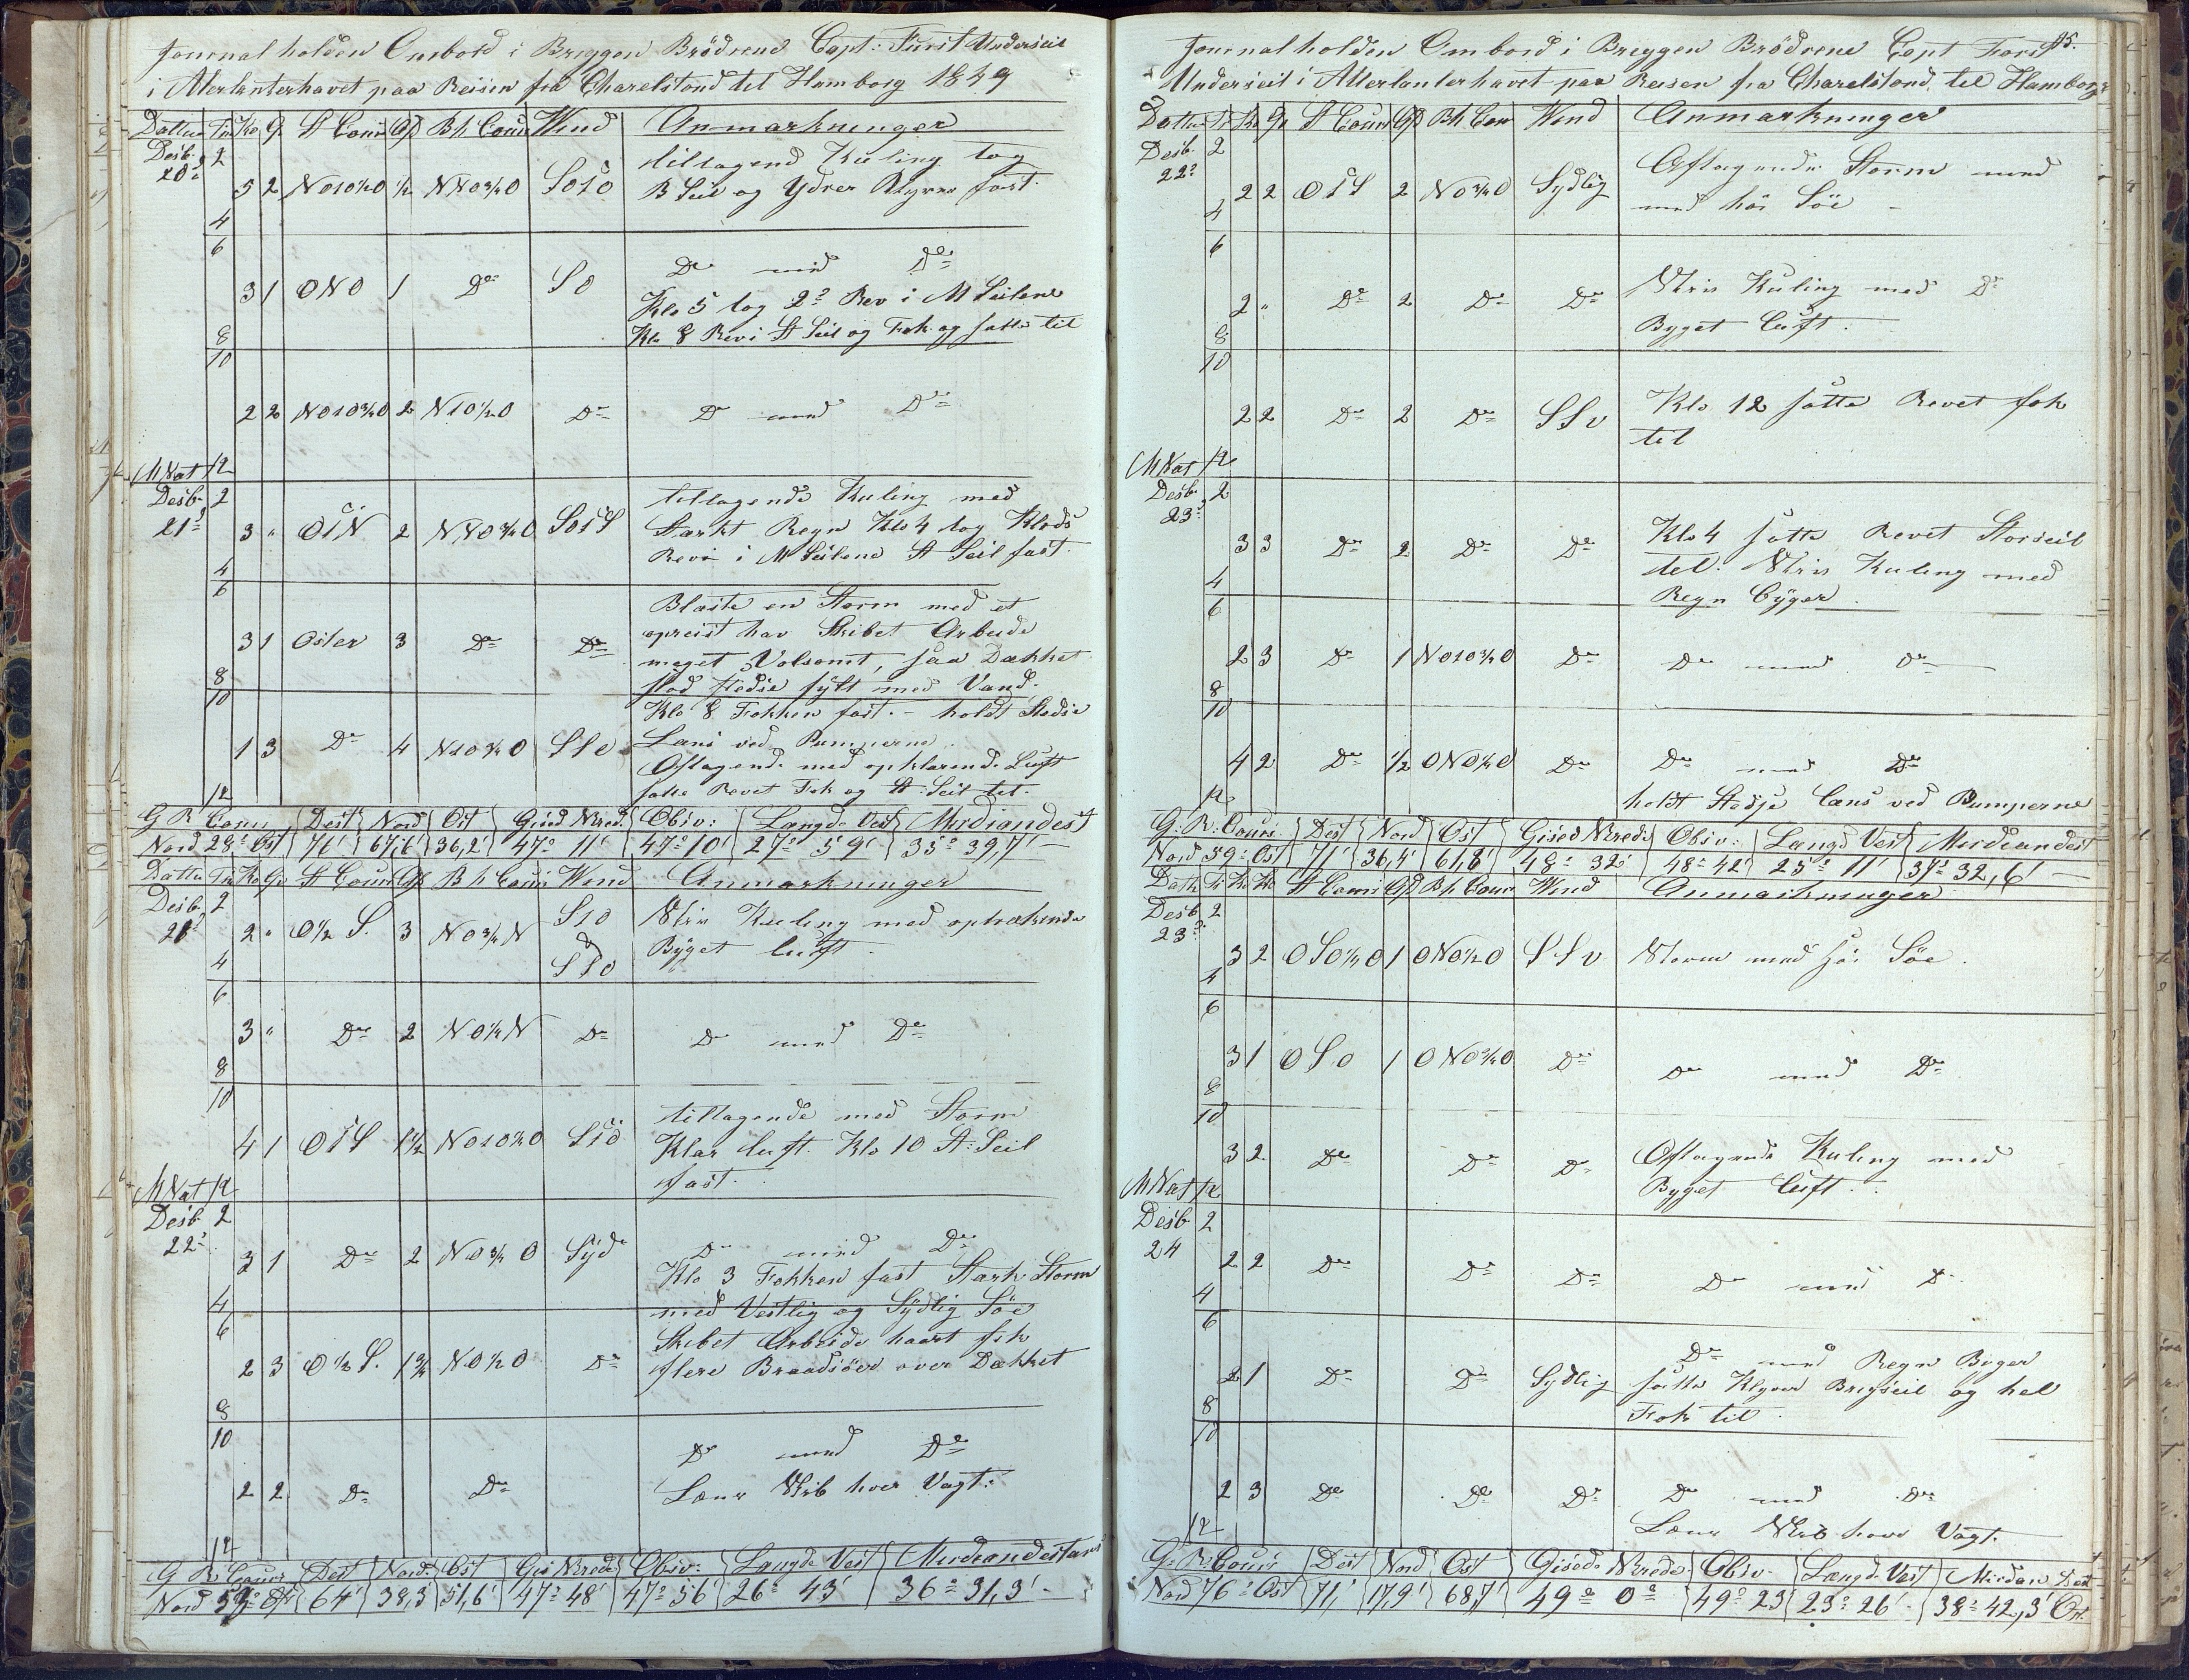 Journal holden Ombord i Briggen Brödrene Capt: Först Underseil
i Aterlanterhavet paa Reisen fra Charelstond til Hamborg 1849
Dattum Tm Ko Q St Cours Af Bh Cours Wind Anmarkninger
Desb. 2
20de
5 2 NO10½O ½ N80¾O SO1O tiltagend Kuling tog
B Seil og Ydrer Klyver fast.
4
6
3 1 ONO 1 Do SO Do med Do
Klo 5 tog 2de Rev i M Seilene
Klo 8 Rev i St Seil og Fok og satte til
8
10
2 2 NO10¾O 2 N10½O Do Do med Do
MNat 12
Desb. 2
21de 3 " O1N 2 N80¾O SO1S tiltagende Kuling med
Starkt Regn Klo 4 tog Klods
Revi i M Seilene St Seil fast.
4
6
3 1 Oster 3 Do Do Blæste en Storm med et
opreist hav Skibet Arbeide
meget Volsomt, saa Dækket
stod stedse fÿlt med Vand.
8
10
Klo 8 Fokken fast. – holdt Stedse
1 3 Do 4 N10¾O SSO Læns ved Pumperne
Aftagend. med opklarend. Luft
satte Revet Fok og St. Seil tel.
12
G R Cours Dest Nord Ost Gised Brede. Obsv: Længde Vest Merdiandest
Nord 28° Ost 76' 67,6' 36,2' 47° 11' 47° 10' 27° 59' 35° 39,7' –
Dattu Tm Ko Qv St Cours Af Bh Cours Wind Anmarkninger
Desb. 2
21de 2 " O½ S. 3 NO¾N S1O & SSO Stiv Kuling med optrækende
Bÿget luft.
4
6
3 " Do 2 NO¼N Do Do med Do
8
10
4 1 O1S 1½ NO10¾O S1O tiltagende med Storm
Klar luft. Klo 10 St: Seil
fast.
MNat 12
Desb. 2
22de
3 1 Do 2 NO¾O Sÿd Do med Do
Klo 3 Fokken fast Stærk Storm
med Vestlig og Sÿdlig Söe
4
6
2 3 O½ S. 1¾ NO½O Do Skibet Arbeide haart fik
flere Braadsöer over Dækket
8
10
2 2 Do Do Do med Do
Læns Skib hver Vagt.
12
G R: Cours Dest Nord. Ost Gis Brede Obsv: Længde Vest Merdiandestans
Nord 53° Ost 64' 38,3' 51,6' 47° 48' 47° 56' 26° 43' 36° 31,3' –
15.
Journal holden Ombord i Breggen Brödrene Capt Först
Underseil i Aterlanterhavet paa Reisen fra Charelstond til Hamborg
Dattu T Ko Q St Cours Af Bh Cour Wind Anmarkninger
Desb. 2
22de
2 2 O1S 2 NO¾O Sydlig Aftagende Storm med
med höi Söe –
4
6
2 " Do 2 Do Do Stiv Kuling med Do
Byget Luft.
8
10
2 2 Do 2 Do SSv Klo 12 satte Revet fok
til
MNat 12
Desb. 2
23de
3 3 Do 2 Do Do Klo 4 satte Revet Storseil
tel. Stiv Kuling med
Regn Bÿger
4
6
2 3 Do 1 NO10¾O Do Do med Do
8
10
4 2 Do ½ ONO¼O Do Do med Do
holdt Stedse læns ved Pumperne
12
G: R: Cours. Dest Nord Ost Gised Brede Obsv: Længd Vest Merdiandest
Nord 59° Ost 71' 36,4' 61,8' 48° 32' 48° 42' 25° 11' 37° 32,6' –
Datt T Ko Ko St Cours Af Bh. Cour Wind Anmarkninger
Desb 2
23de
3 2 OSO½O 1 ONO½O SSv Storm med höi Söe.
4
6
3 1 OSO 1 ONO¾O Do Do med Do
8
10
3 2 Do Do Do Aftagende Kuling med
Byget luft.
MNat 12
Desb. 2
24 2 2 Do Do Do Do med Do
4
6
2 1 Do Do Sydlig Do med Regn Byger
satte Klyver Bregseil og hel
Fok til.
8
10
2 3 Do Do Do Do med Do
Læns Skib hver Vagt.
12
G: R: Cours Dest Nord Ost Gisede Brede Obsv. Længd. Vest Mirdian Dest
Nord 76° Ost 71,' 17,9' 68,7' 49° 0° 49° 23' 23° 26' 38° 42,3' Ost